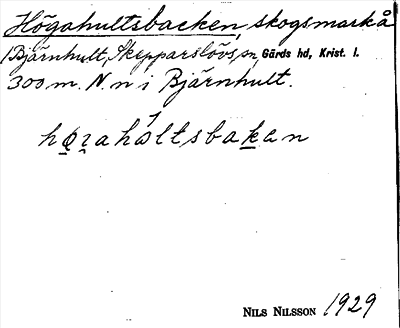 Högahultsbacken, skogsmark å
1 Bjärnhult, Skepparslövs sn, Gärds hd, Krist. l.
300 m. N. n i Bjärnhult.
hø̱ʒahåltsbaḵan
NILS NILSSON 1929